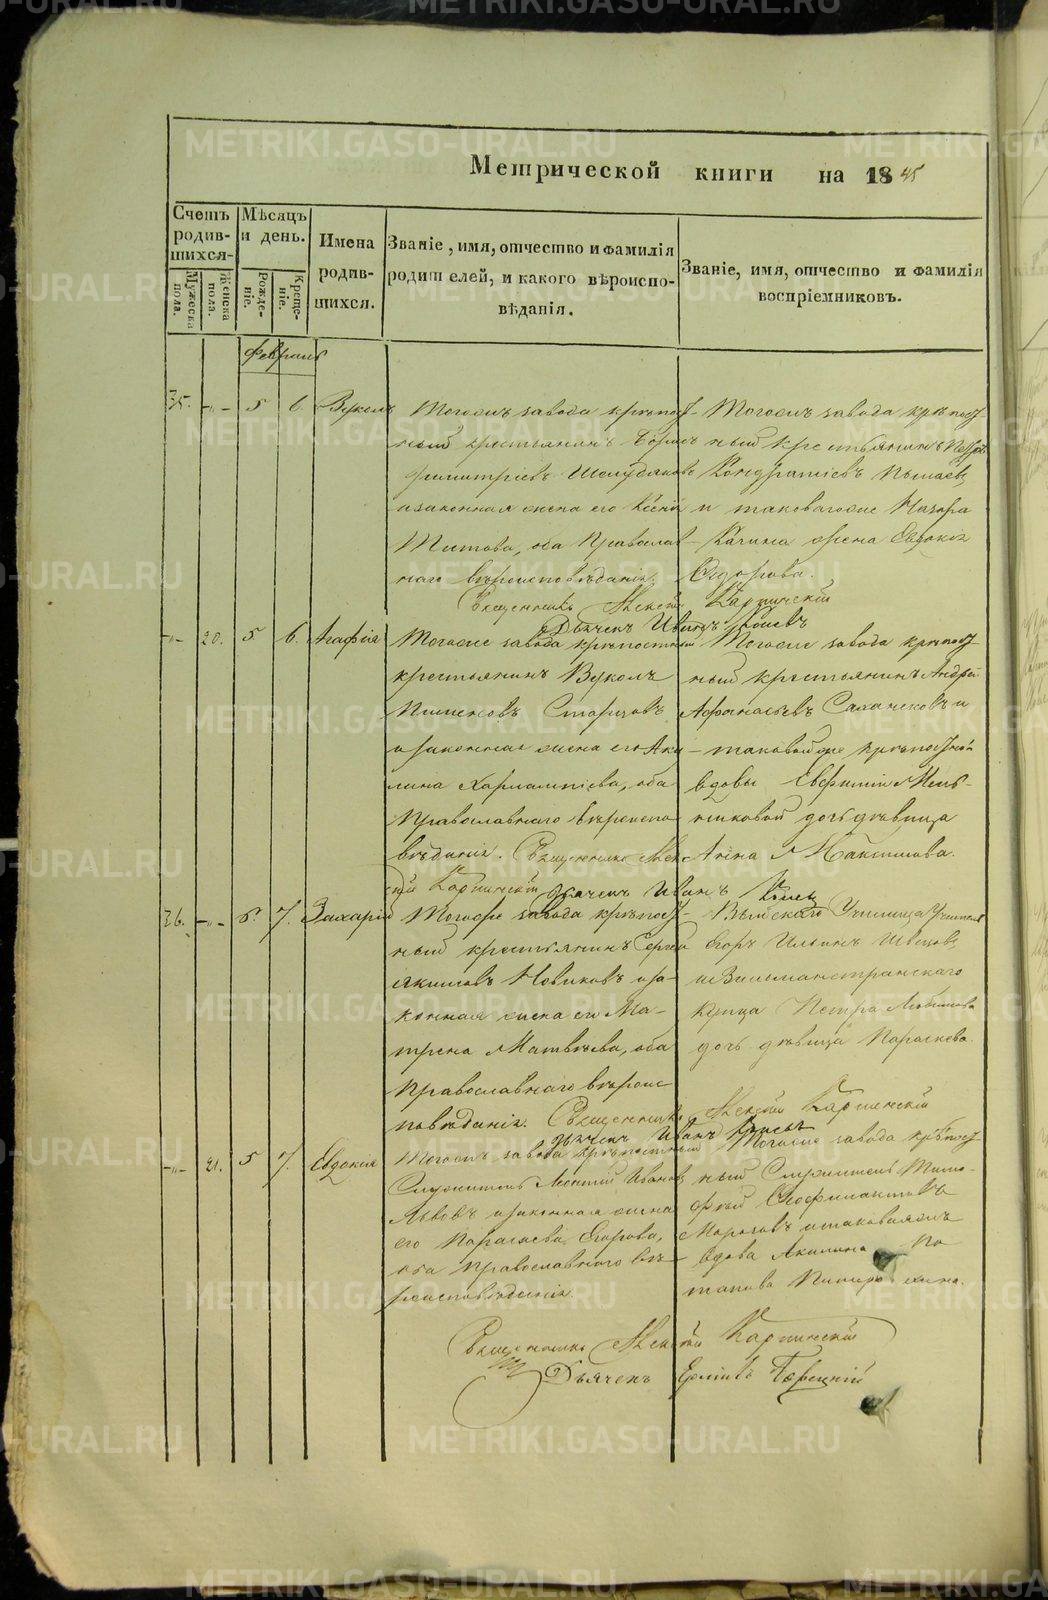 METRIKI.GASO-URAL.RU
Метрической книги на 1845
Счетъ родив-шихся.
Мужеска пола.
Женска пола.
Мѣсяцъ и день.
Рожде-ніе.
Креще-ніе.
Имена родив-шихся.
Званіе, имя, отчество и фамилія родителей, и какого вѣроиспо-вѣданія.
Званіе, имя, отчество и фамилія воспріемниковъ.
Февраль
35. -„- 5 6. Вуколъ
Тогожъ завода крѣпост-
ный крестьянинъ Борисъ
Димитріевъ Шелудяковъ
и законная жена его Ксенія
Титова, оба Православ-
наго вѣроисповѣданія.
Тогожъ завода крѣпост-
ный крестьянинъ
Кондратіевъ
и таковагоже Назара
жена Евдокія
Сидорова.
Священникъ Алексій Карпинскій
Дьячекъ Иванъ
-„- 20. 5 6. Агафія
Тогоже завода крѣпостный
крестьянинъ Вуколъ
Пименовъ Старцовъ
и законная жена его Аку-
лина Харлампіева, оба
Православнаго вѣроиспо-
вѣданія. Священникъ Алек-
сій Карпинскій Дьячекъ Иванъ
Тогоже завода крѣпост-
ный крестьянинъ Андрей
Афонасьевъ и
таковойже крѣпостной
вдовы Евфиміи Мель-
никовой дочь дѣвица
Анна Максимова.
36. -„- 6. 7. Захарій
Тогоже завода крѣпост-
ный крестьянинъ Сергей
Якимовъ Новиковъ и за-
конная жена его Ма-
трена Матвѣева, оба
Православнаго вѣроис-
повѣданія. Священникъ Алексій Карпинскій
Дьячекъ Иванъ
Выйскаго Училища Учитель
Егоръ Ильинъ Швецовъ
и Вильманстранскаго
купца Петра Любимова
дочь дѣвица Параскева.
-„- 21. 5 7. Евдокія
Тогожъ завода крѣпостный
Служитель Леонтій Ивановъ
Львовъ и законная жена
его Парасковья Егорова,
оба Православнаго вѣ-
роисповѣданія.
Тогоже завода крѣпост-
ный Служитель Тимо-
фѣй Феофилактовъ
Морозовъ и таковаяжъ
вдова Акилина По-
тапова
Священникъ Алексій Карпинскій
Дьячекъ